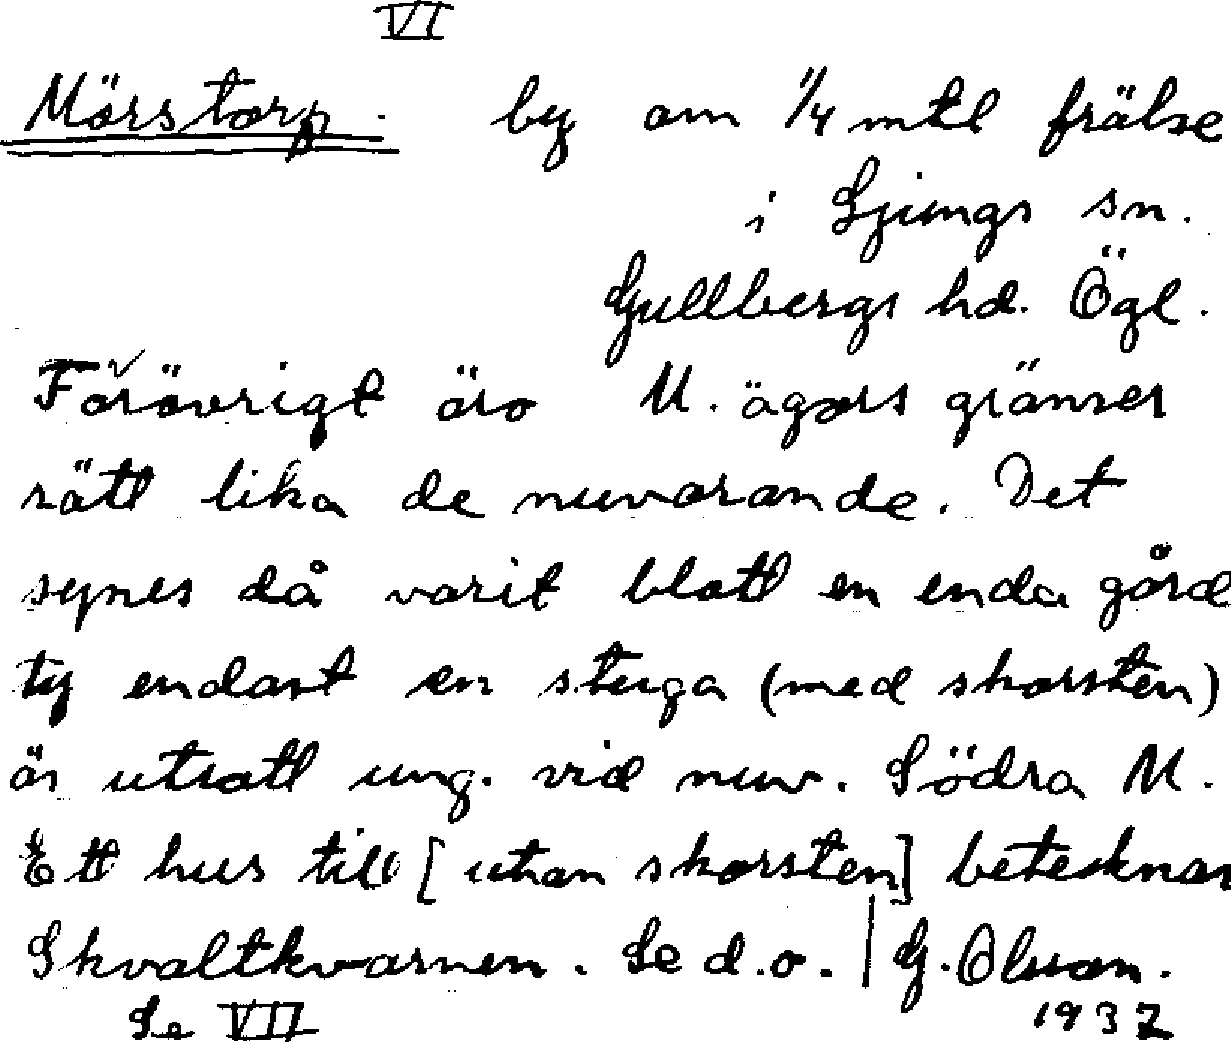 VI
Mörstorp. by om 1/4 mtl frälse
i Ljungs sn.
Gullbergs hd. Ögl.
Förövrigt äro M. ägors gränser
rätt lika de nuvarande. Det
synes då varit blott en enda gård
ty endast en stuga (med skorsten)
är utsatt ung. vid nuv. Södra M.
Ett hus till [utan skorsten] betecknar
Skvaltkvarnen. Se d.o. | G. Olsson.
Se VII 1937